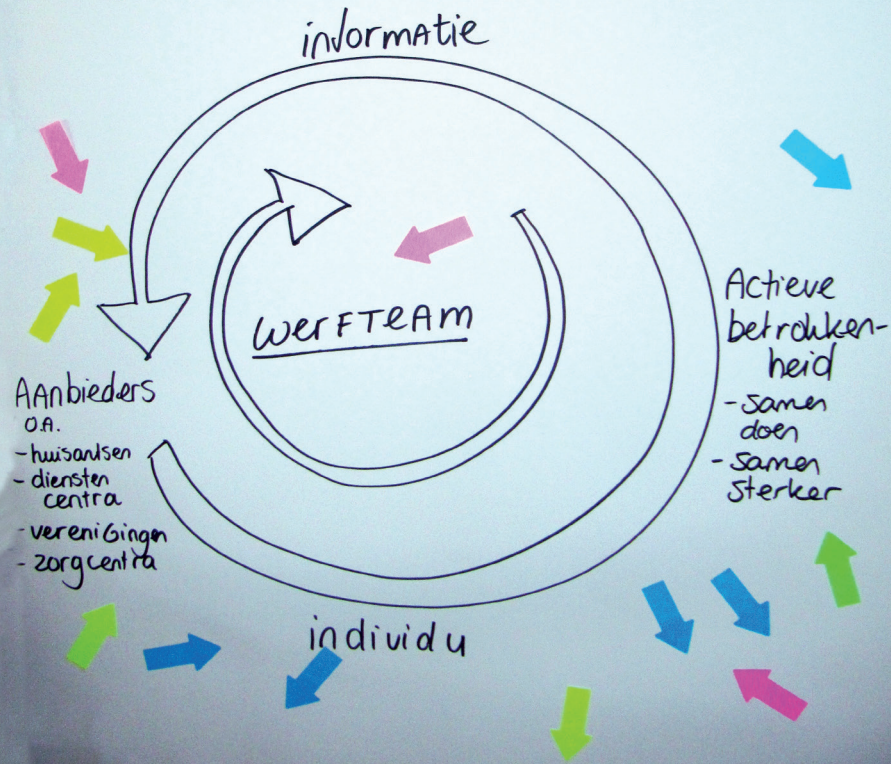 informatie
werfteam
Aanbieders
o.a.
- huisartsen
- diensten
centra
- verenigingen
- zorgcentra
Actieve
betrokken-
heid
- samen
doen
- samen
sterker
individu